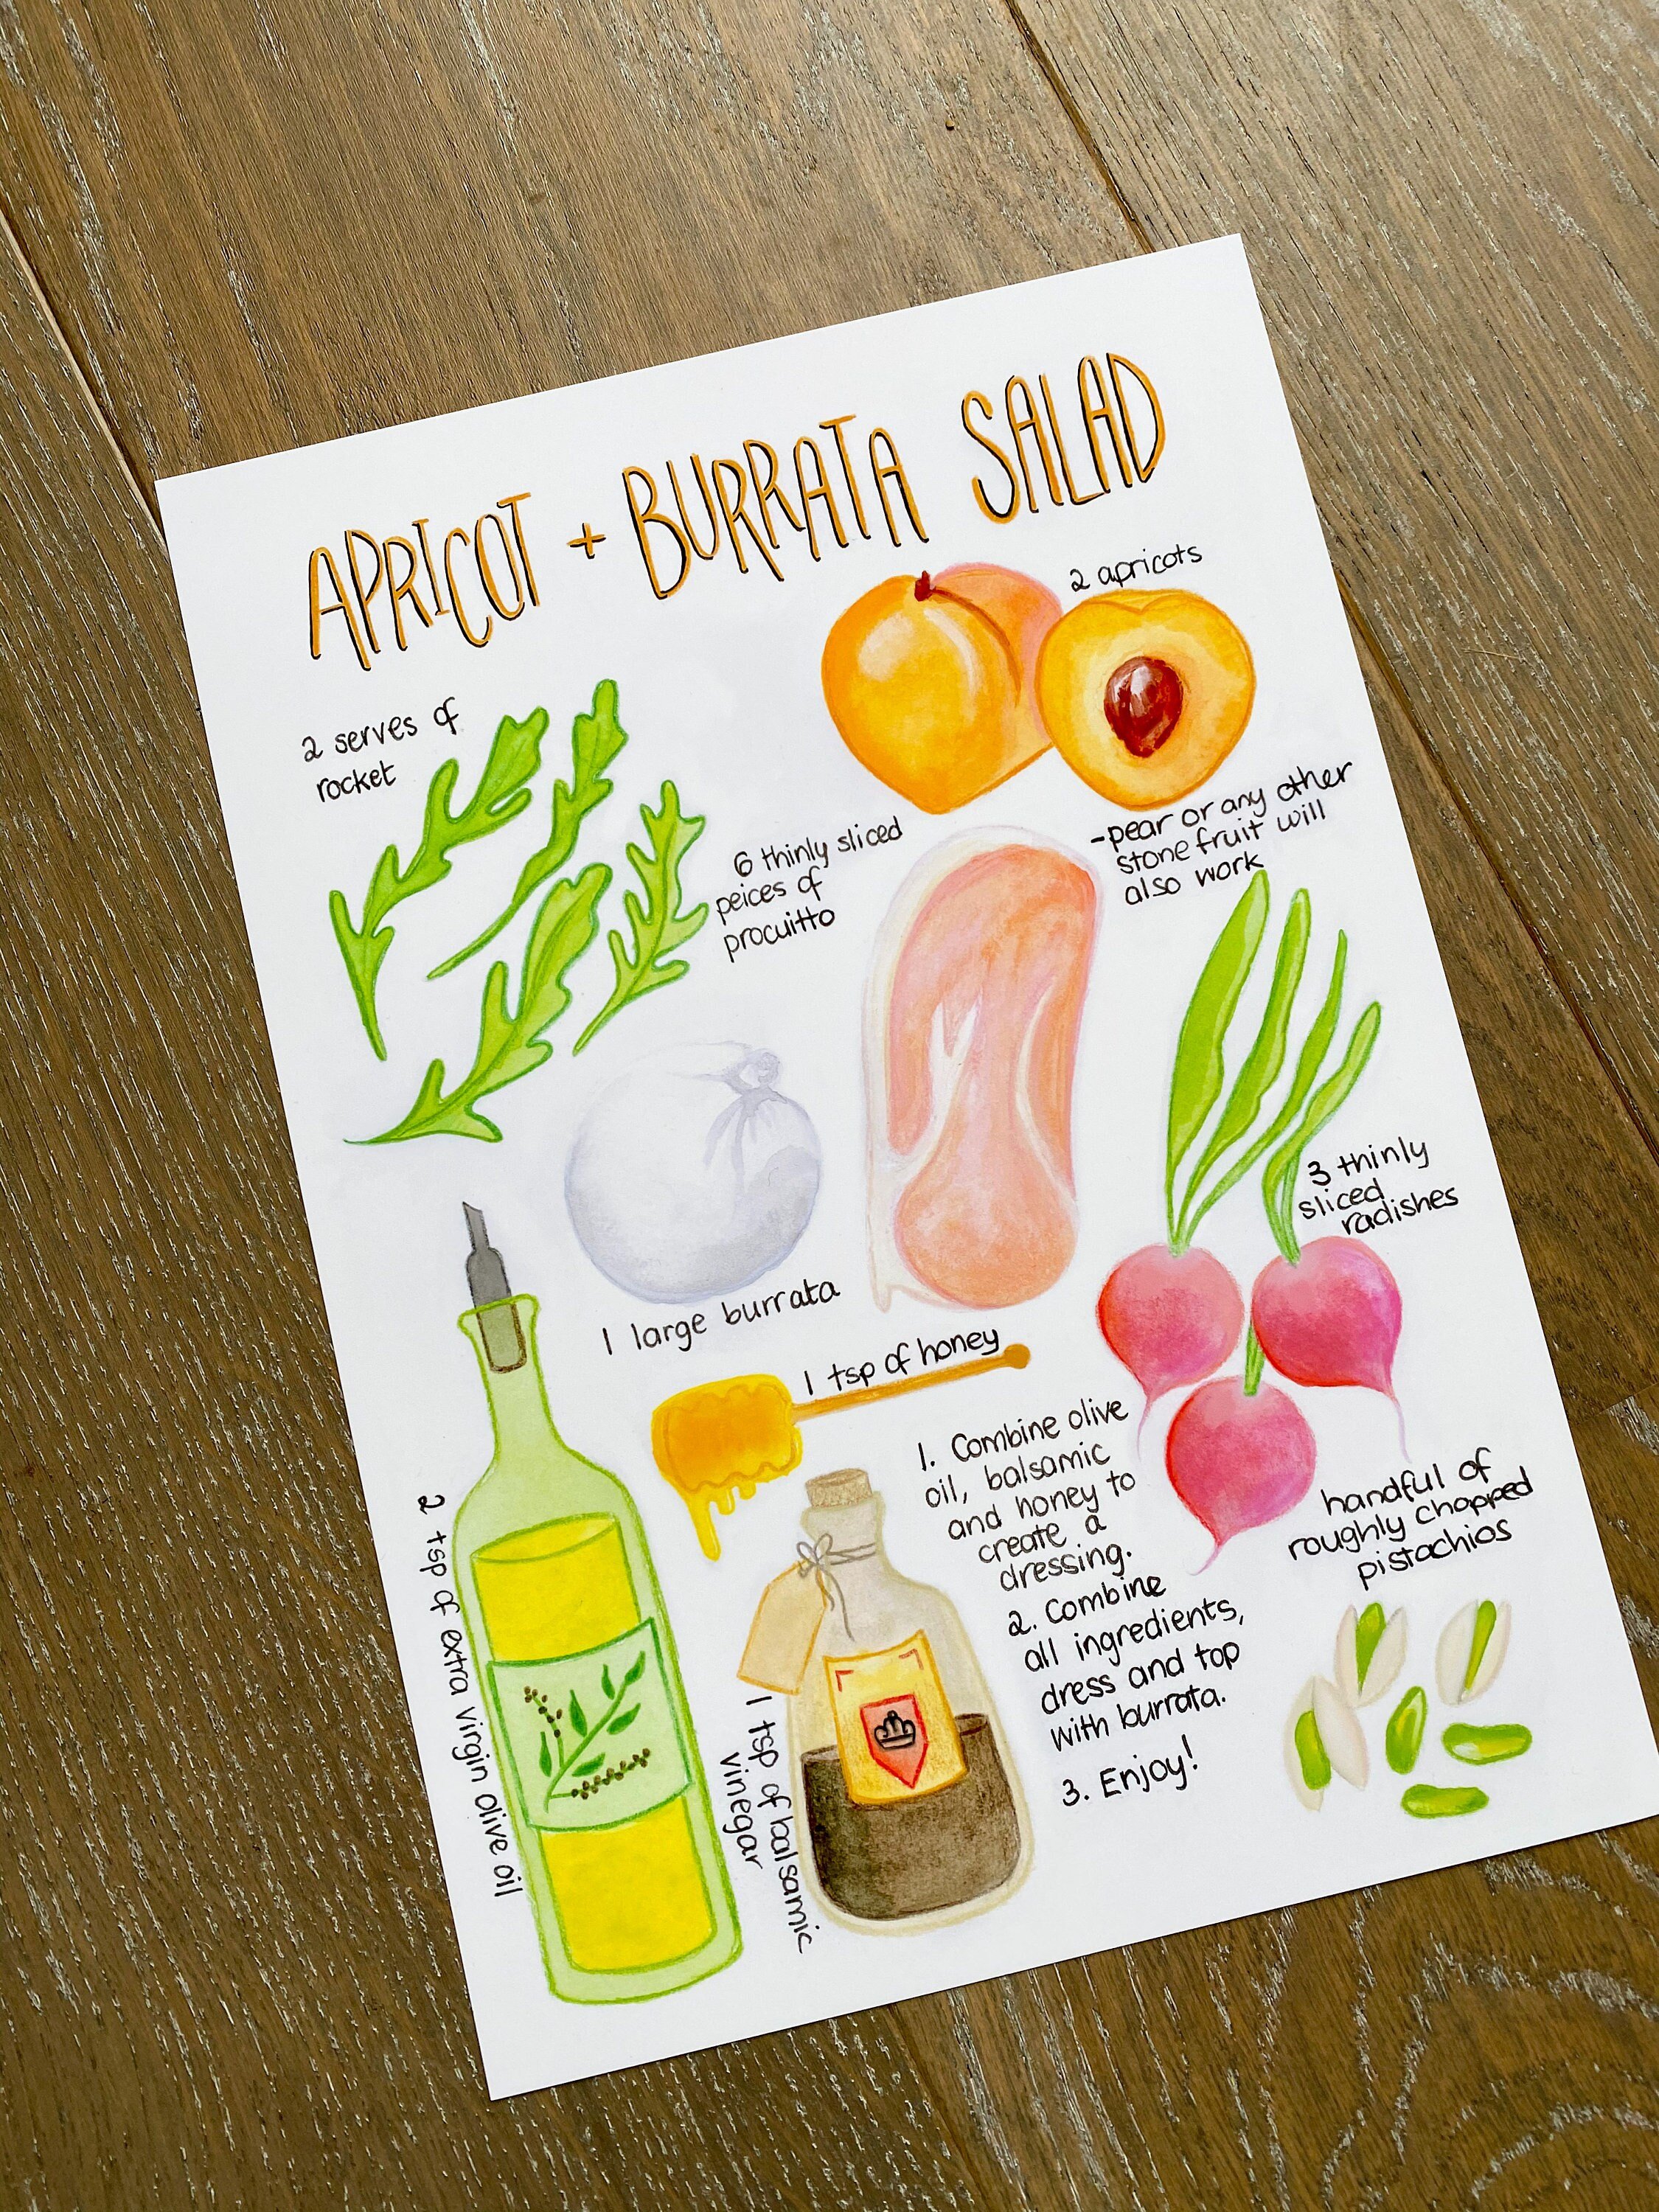 APRICOT + BURRATA SALAD
2 apricots
-pear or any other
stone fruit will
also work
2 serves of
rocket
6 thinly sliced
peices of
procuitto
3 thinly
sliced
radishes
1 large burrata
1 tsp of honey
1. Combine olive
oil, balsamic
and honey to
create a
dressing.
2. Combine
all ingredients,
dress and top
with burrata.
3. Enjoy!
handful of
roughly chopped
pistachios
2 tsp of extra virgin olive oil
1 tsp of balsamic
vinegar